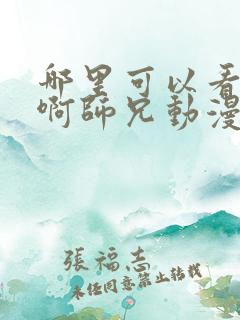 哪里可以看
啊師兄動漫
張福志
未任同意禁止转载